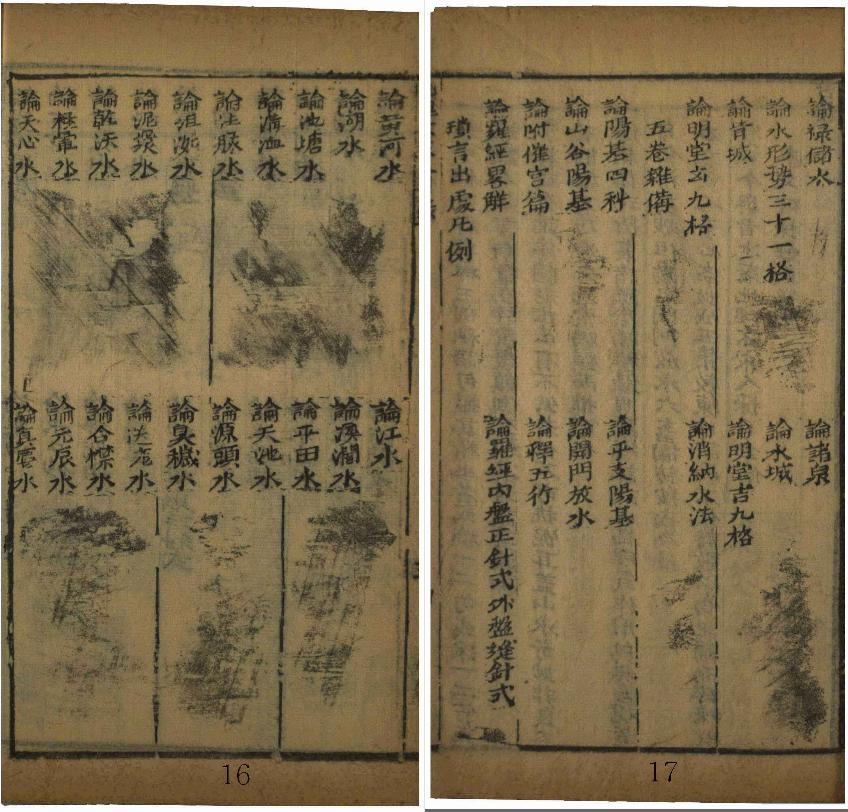 論黃河水
論江水
論湖水
論溪澗水
論池塘水
論平田水
論溝洫水
論天池水
論注脉水
論源頭水
論沮洳水
論臭穢水
論泥漿水
論 水
論乾流水
論合襟水
論極暈水
論元辰水
論天心水
論真應水
16
論祿儲水
論諸泉
論水形勢三十一格
論水城
論背城
論明堂吉九格
論明堂凶九格
論消納水法
五卷雜僃
論陽基四科
論平支陽基
論山谷陽基
論開門放水
論附催官篇
論釋五行
論羅經畧觧
論羅經內盤正針式外盤縫針式
瑣言出處凡例
17